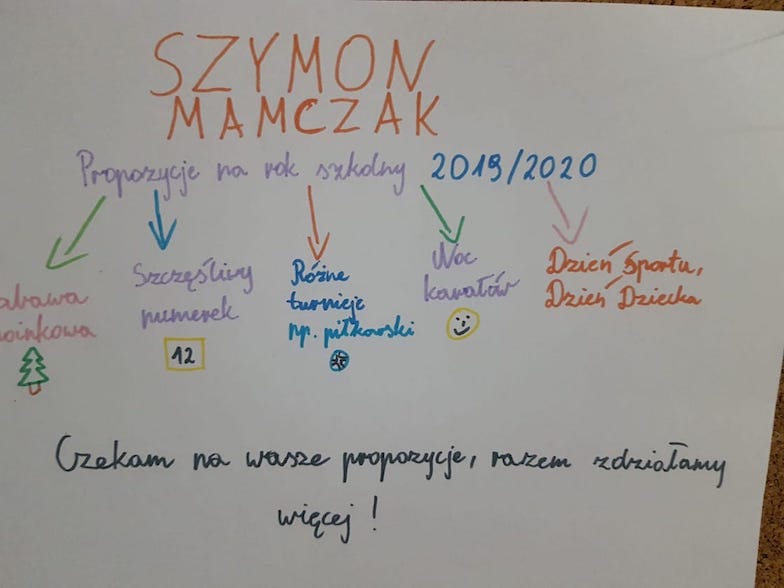 SZYMON
MAMCZAK
Propozycje na rok szkolny 2019/2020
abawa
oinkowa
Szczęśliwy
numerek
12
Różne
turnieje
np. piłkarski
Noc
kawałów
Dzień Sportu,
Dzień Dziecka
Czekam na wasze propozycje, razem zdziałamy
więcej!